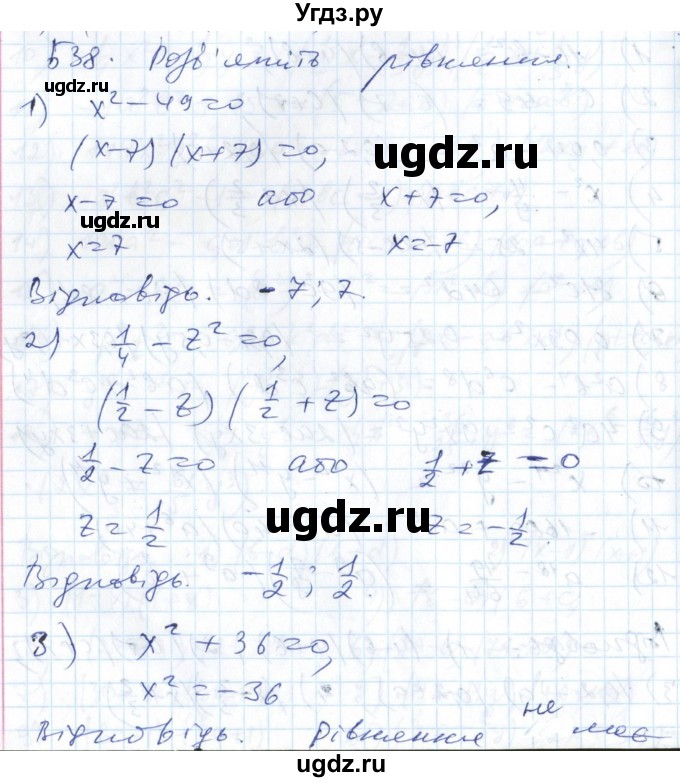 Угдз.ру
538. Розв'яжіть рівняння:
ugdz.ru
1) x² − 49 = 0
(x−7)(x+7) = 0,
ugdz.ru
x−7=0 або x+7=0,
ugdz.ru
x=7 x=−7
Відповідь. −7; 7.
2) 1/4 − z² = 0,
(1/2 − z)(1/2 + z) = 0
1/2 − z = 0 або 1/2 + z = 0
z = 1/2 z = −1/2.
ugdz.ru
Відповідь. −1/2; 1/2.
3) x² + 36 = 0,
x² = −36
не
Відповідь. рівняння має
ugdz.ru